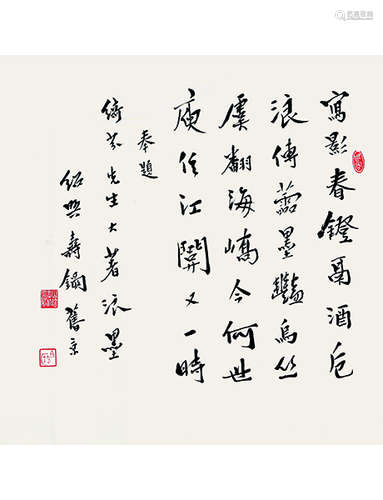 寫影春鐙鬲酒卮
浪傳墨豔烏絲
虞翻海嶠今何世
庾信江關又一時
奉題
綺芬先生大著浪墨
紹興壽鑈舊京